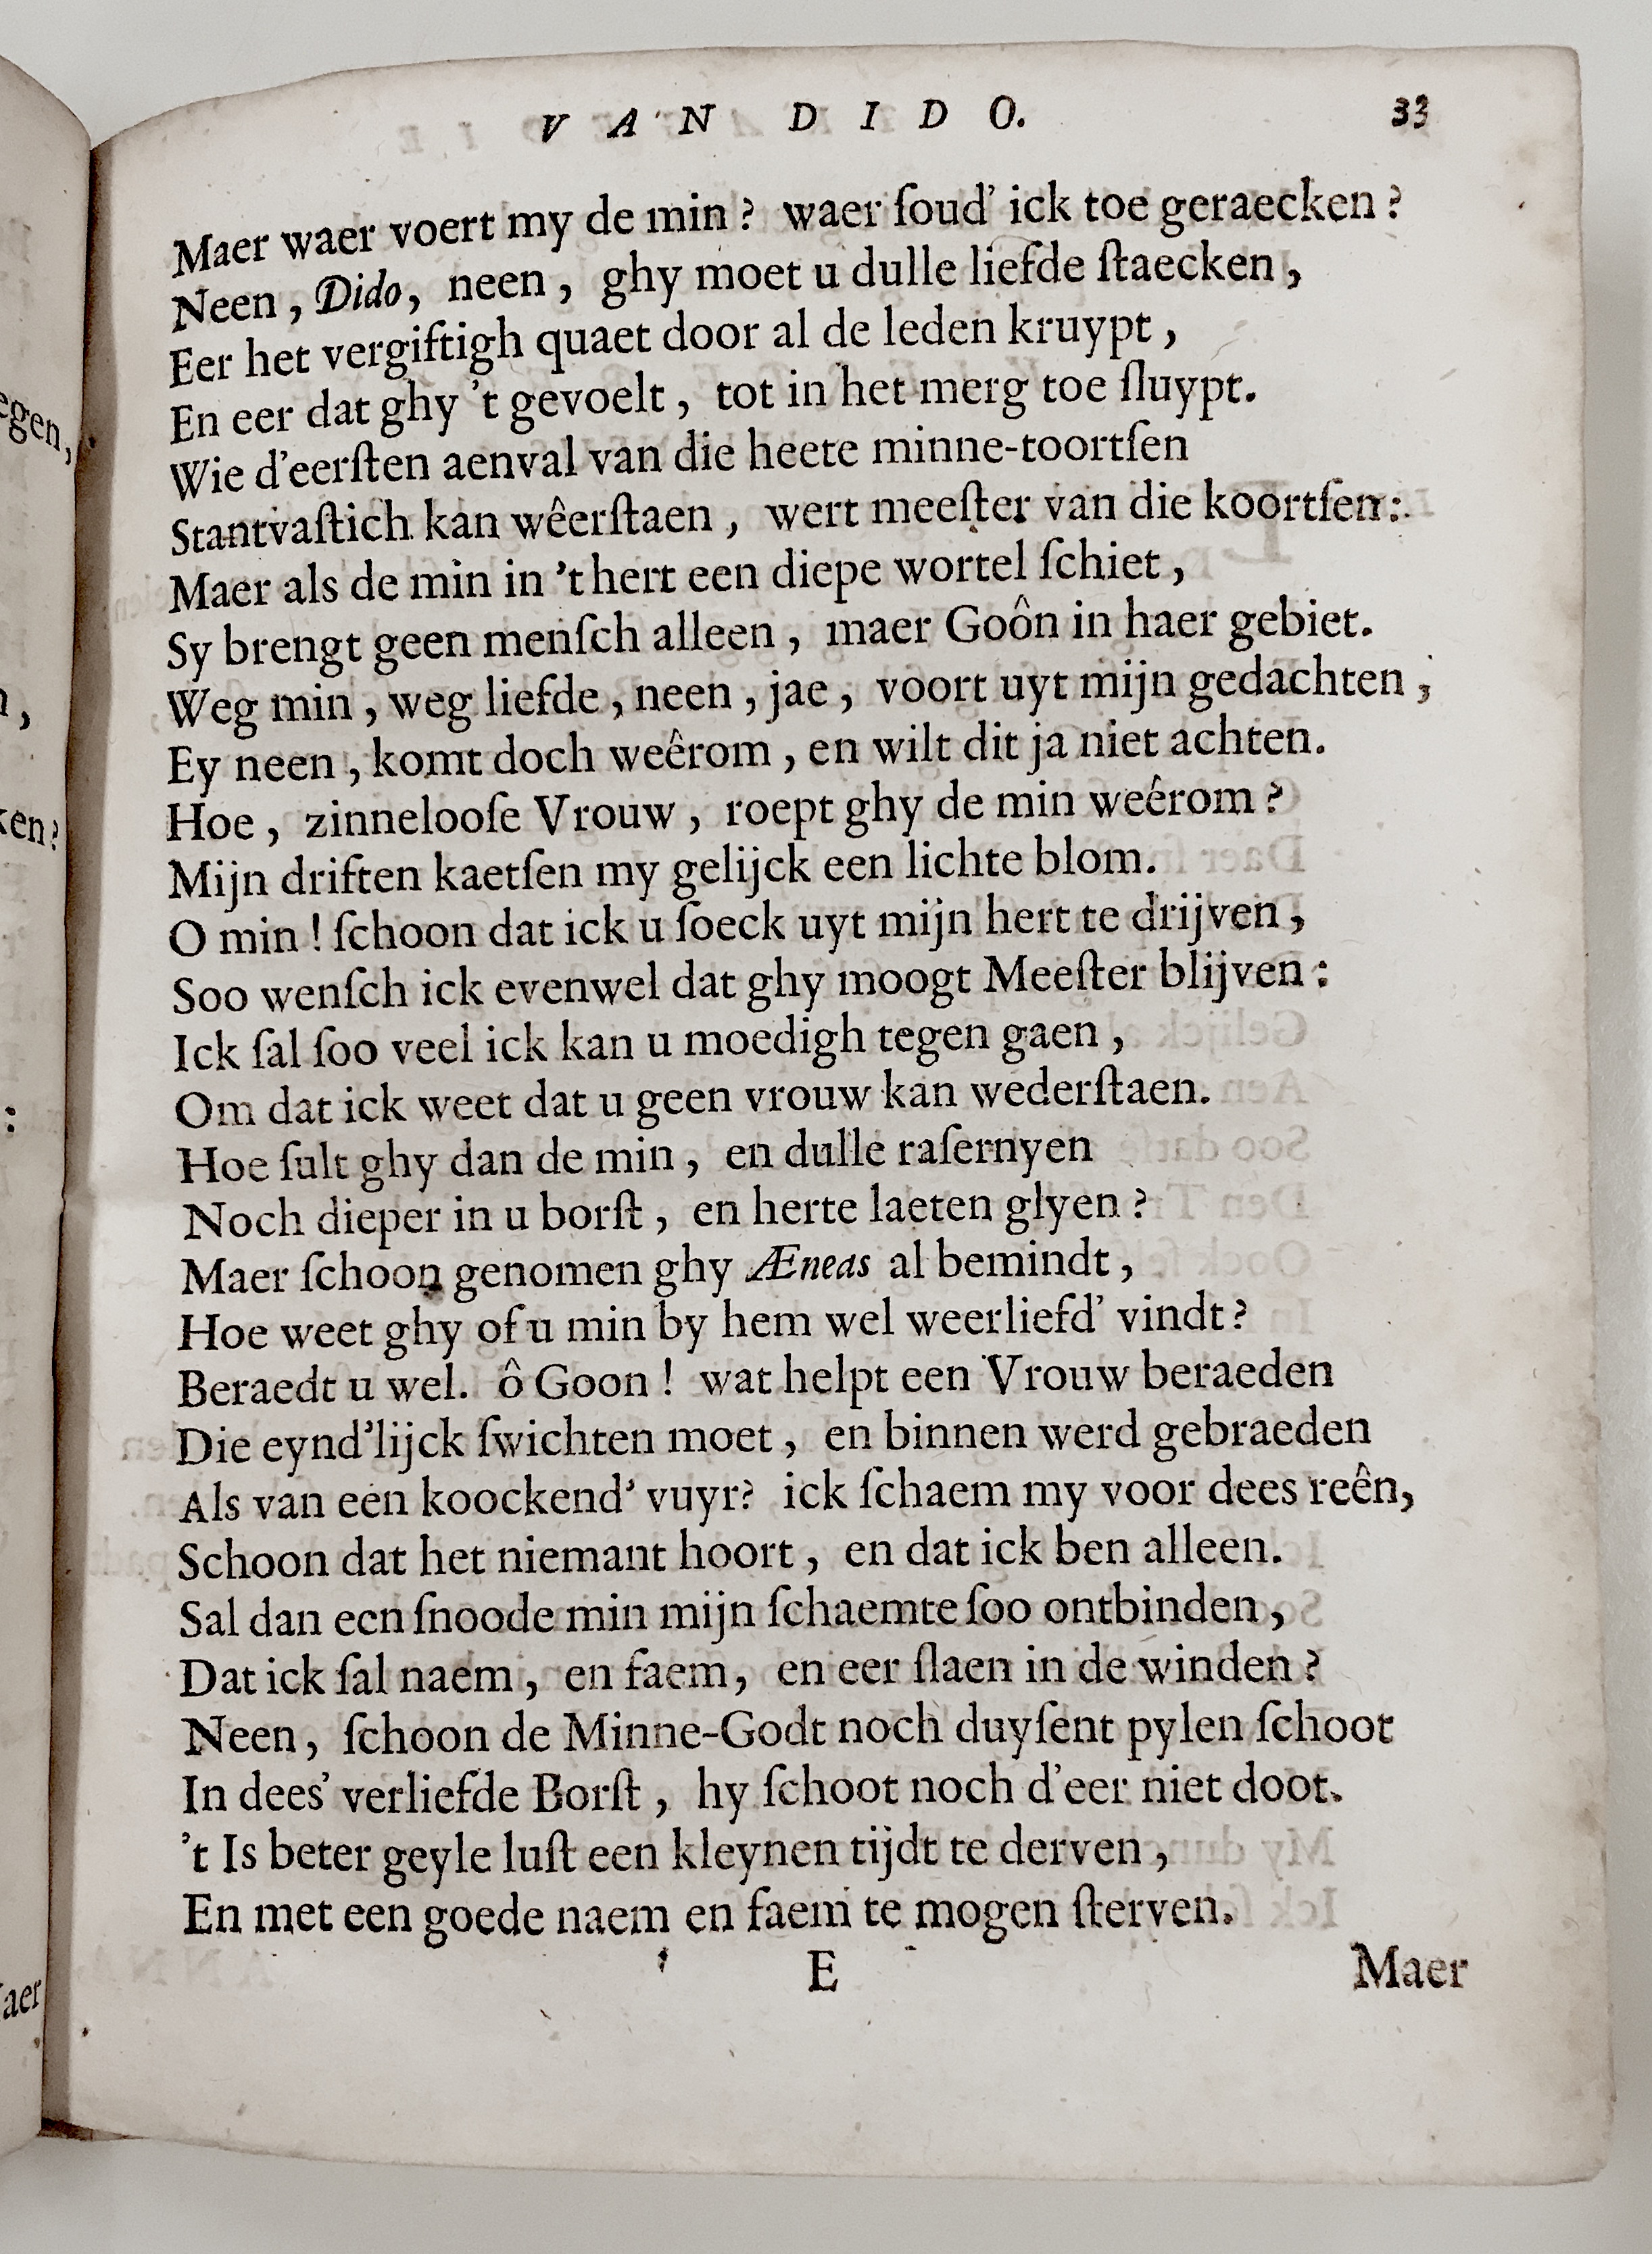 VAN DIDO. 33
Maer waer voert my de min? waer ſoud' ick toe geraecken?
Neen, Dido, neen, ghy moet u dulle liefde ſtaecken,
Eer het vergiftigh quaet door al de leden kruypt,
En eer dat ghy 't gevoelt, tot in het merg toe ſluypt.
Wie d'eerſten aenval van die heete minne-toortſen
Stantvaſtich kan wêerſtaen, wert meeſter van die koortſen:
Maer als de min in 't hert een diepe wortel ſchiet,
Sy brengt geen menſch alleen, maer Goôn in haer gebiet.
Weg min, weg liefde, neen, jae, voort uyt mijn gedachten,
Ey neen, komt doch weêrom, en wilt dit ja niet achten.
Hoe, zinnelooſe Vrouw, roept ghy de min weêrom?
Mijn driften kaetſen my gelijck een lichte blom.
O min! ſchoon dat ick u ſoeck uyt mijn hert te drijven,
Soo wenſch ick evenwel dat ghy moogt Meeſter blijven:
Ick ſal ſoo veel ick kan u moedigh tegen gaen,
Om dat ick weet dat u geen vrouw kan wederſtaen.
Hoe ſult ghy dan de min, en dulle raſernyen
Noch dieper in u borſt, en herte laeten glyen?
Maer ſchoon genomen ghy Æneas al bemindt,
Hoe weet ghy of u min by hem wel weerliefd' vindt?
Beraedt u wel. ô Goon! wat helpt een Vrouw beraeden
Die eynd'lijck ſwichten moet, en binnen werd gebraeden
Als van een koockend' vuyr? ick ſchaem my voor dees reên,
Schoon dat het niemant hoort, en dat ick ben alleen.
Sal dan een ſnoode min mijn ſchaemte ſoo ontbinden,
Dat ick ſal naem, en faem, en eer ſlaen in de winden?
Neen, ſchoon de Minne-Godt noch duyſent pylen ſchoot
In dees' verliefde Borſt, hy ſchoot noch d'eer niet doot.
't Is beter geyle luſt een kleynen tijdt te derven,
En met een goede naem en faem te mogen ſterven.
E Maer